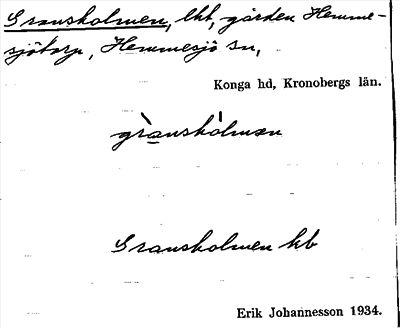 Gransholmen, lht, gården Hemme-
sjötorp, Hemmesjö sn,
Konga hd, Kronobergs län.
grànshólmen
Gransholmen kb
Erik Johannesson 1934.